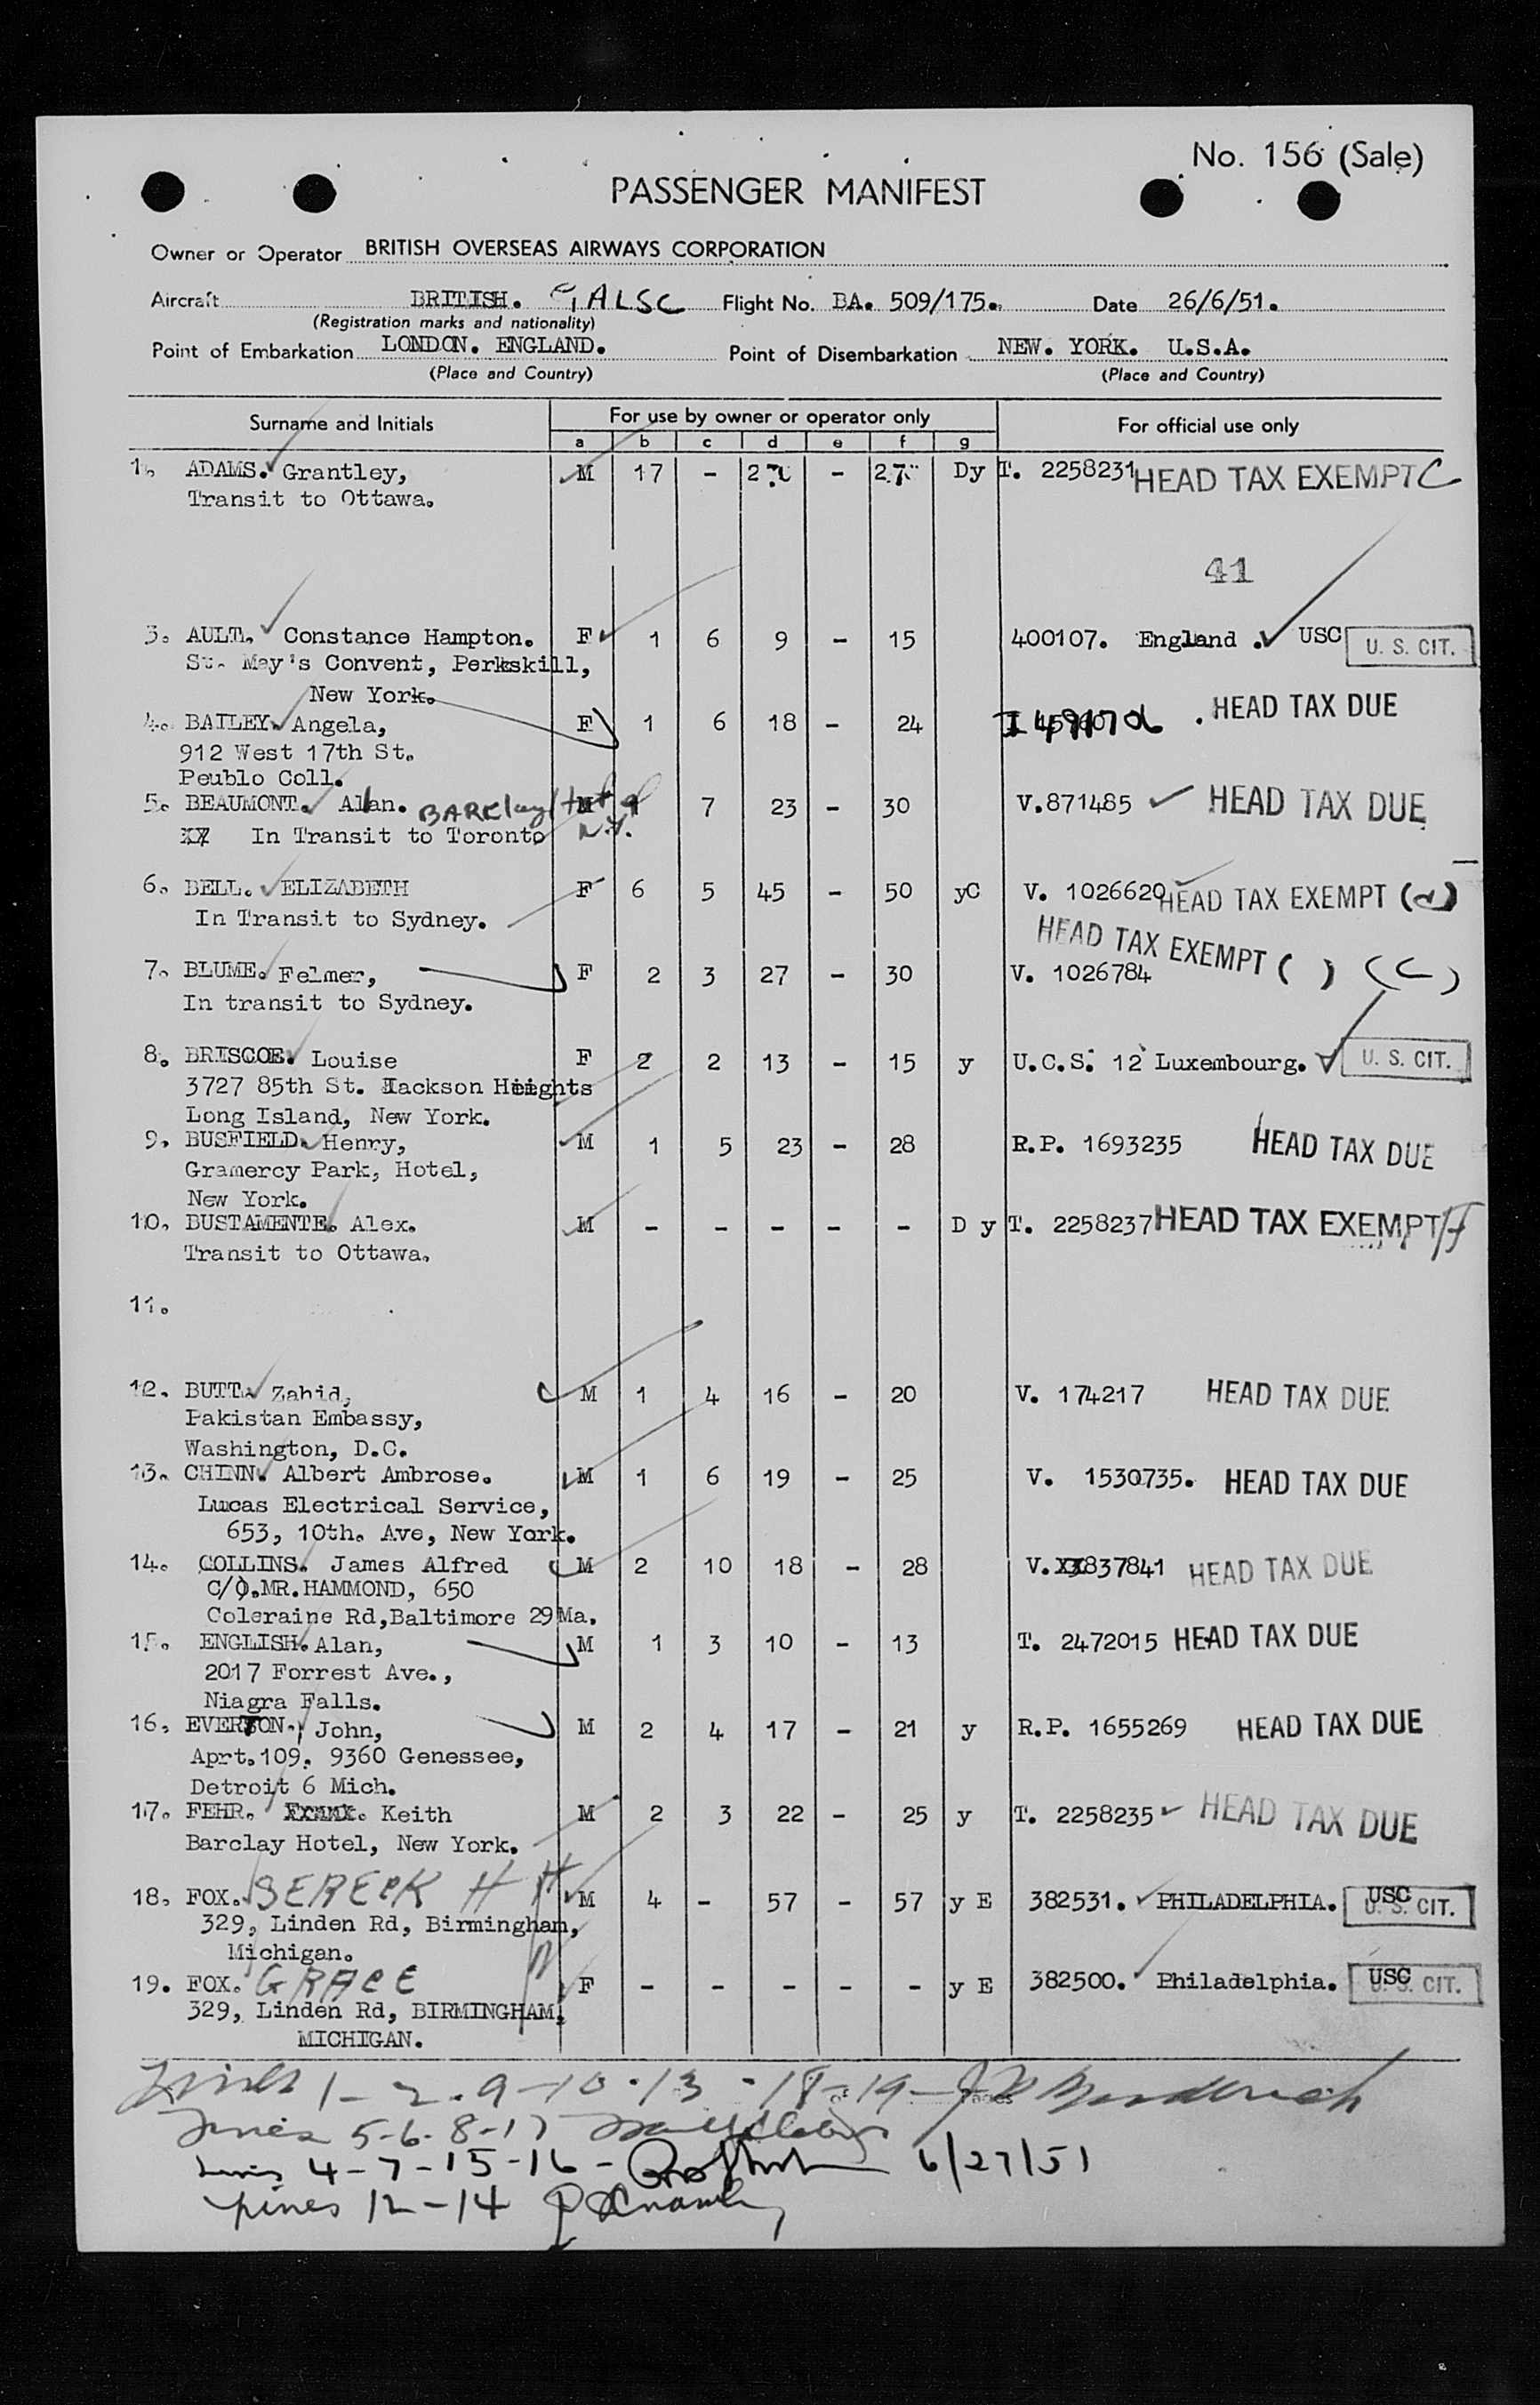 No. 156 (Sale)
PASSENGER MANIFEST
Owner or Operator BRITISH OVERSEAS AIRWAYS CORPORATION
Aircraft BRITISH. GALSC Flight No. BA. 509/175. Date 26/6/51.
(Registration marks and nationality)
Point of Embarkation LONDON. ENGLAND. Point of Disembarkation NEW. YORK. U.S.A.
(Place and Country) (Place and Country)
Surname and Initials For use by owner or operator only For official use only
a b c d e f g
1. ADAMS. Grantley, M 17 - - Dy T. 2258231 HEAD TAX EXEMPT C
Transit to Ottawa.
41
3. AULT. Constance Hampton. F 1 6 9 - 15 400107. England. USC U. S. CIT.
St. May's Convent, Perkskill,
New York.
4. BAILEY. Angela, F 1 6 18 - 24 HEAD TAX DUE
912 West 17th St.
Peublo Coll.
5. BEAUMONT. Alan. BARClay Hotel M 7 23 - 30 V.871485 HEAD TAX DUE
XX In Transit to Toronto N.Y.
6. BELL. ELIZABETH F 6 5 45 - 50 yC V. 1026620 HEAD TAX EXEMPT (d)
In Transit to Sydney.
HEAD TAX EXEMPT ( ) (C)
7. BLUME. Felmer, F 2 3 27 - 30 V. 1026784
In transit to Sydney.
8. BRISCOE. Louise F 2 2 13 - 15 y U.C.S. 12 Luxembourg. U. S. CIT.
3727 85th St. Jackson Heights
Long Island, New York.
9. BUSFIELD. Henry, M 1 5 23 - 28 R.P. 1693235 HEAD TAX DUE
Gramercy Park, Hotel,
New York.
10. BUSTAMENTE. Alex. M - - - - - D y T. 2258237 HEAD TAX EXEMPT F
Transit to Ottawa.
11.
12. BUTT. Zahid, M 1 4 16 - 20 V. 174217 HEAD TAX DUE
Pakistan Embassy,
Washington, D.C.
13. CHINN. Albert Ambrose. M 1 6 19 - 25 V. 1530735. HEAD TAX DUE
Lucas Electrical Service,
653, 10th. Ave, New York.
14. COLLINS. James Alfred M 2 10 18 - 28 V.XX837841 HEAD TAX DUE
C/O.MR.HAMMOND, 650
Coleraine Rd,Baltimore 29 Ma.
15. ENGLISH. Alan, M 1 3 10 - 13 T. 2472015 HEAD TAX DUE
2017 Forrest Ave.,
Niagra Falls.
16. EVERTON. John, M 2 4 17 - 21 y R.P. 1655269 HEAD TAX DUE
Aprt.109. 9360 Genessee,
Detroit 6 Mich.
17. FEHR. Keith M 2 3 22 - 25 y T. 2258235 HEAD TAX DUE
Barclay Hotel, New York.
18. FOX. M 4 - 57 - 57 y E 382531. PHILADELPHIA. USC U. S. CIT.
329, Linden Rd, Birmingham,
Michigan.
19. FOX. GRACE F - - - - - y E 382500. Philadelphia. USC U. S. CIT.
329, Linden Rd, BIRMINGHAM,
MICHIGAN.
Lines 1-2-9-10-13-18-19-
Lines 5-6-8-17
Lines 4-7-15-16- 6/27/51
Lines 12-14